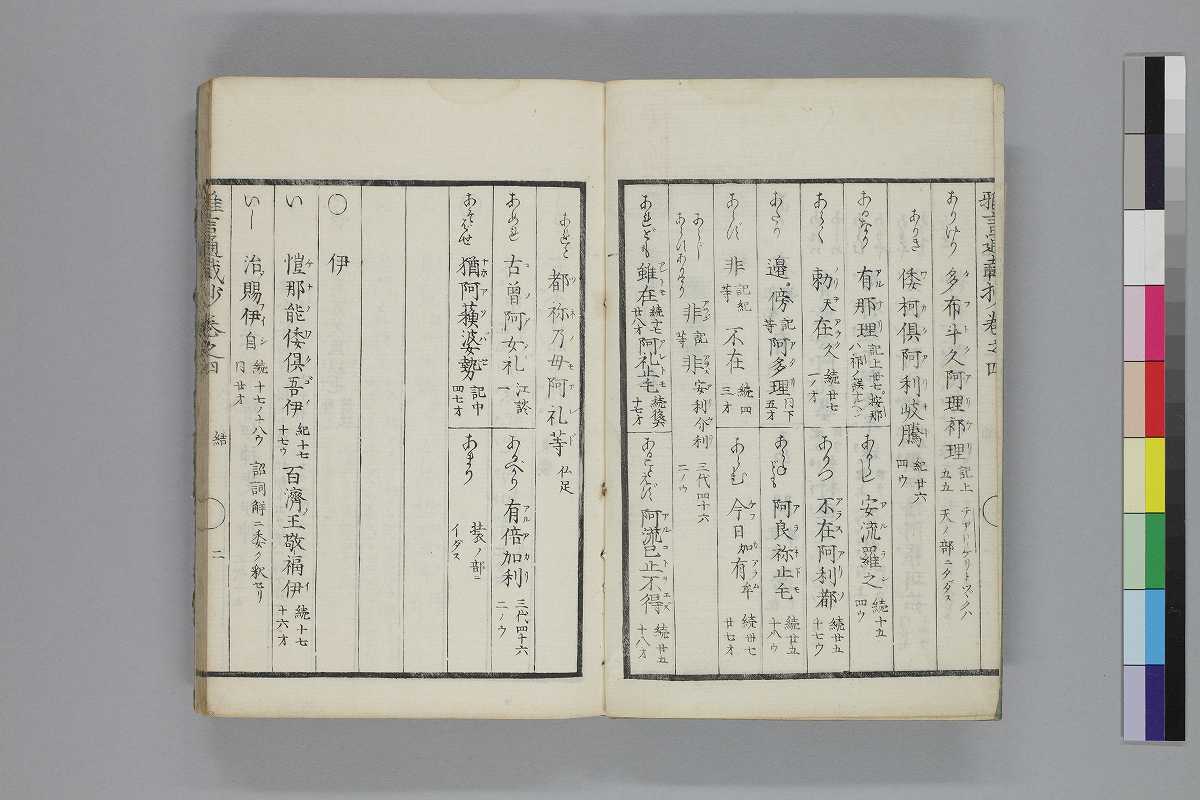 雅言通載抄 巻之四
ありけり 多布斗久阿理祁理 記上 五五 天ノ部ニタダス
ありき 倭柯倶阿利岐騰 紀廿六 四ウ
あるなり 有那理 記上廿七 按那ハ祁ノ誤ナルヘシ
あるらし 安流羅之 続十五 四ウ
あらく 勅天在久 続廿七 一ノオ
ありつ 不在阿利都 続廿五 十七ウ
あたり 邉 傍 記等 阿多理 同下 五オ
あらねども 阿良祢止毛 続廿五 十八ウ
あらず 非 記紀等 不在 続四 三オ
あらむ 今日加有牟 続卅七 廿七オ
あらじ 非 記等 非安利介利 三代四十六 二ノウ
あれども 雖在 続十七 廿八オ 阿礼止毛 続廿 十七オ
あることえず 阿流己止不得 続廿五 十八オ
あれど 都祢乃母阿礼等 仏足
あめれ 古曽阿女礼 江談 一
あるべかり 有倍加利 三代四十六 二ノウ
あそばせ 猶阿蘓婆勢 記中 四七オ
あまり 装ノ部ニイダス
〇 伊
い 愷那能倭倶吾伊 紀十七 十七ウ 百濟王敬福伊 続十七 十六オ
いし 治賜伊自 続十七ノ十八ウ 同廿オ 詔詞解ニ委ク釈セリ
雅言通載抄 巻之四 結 二